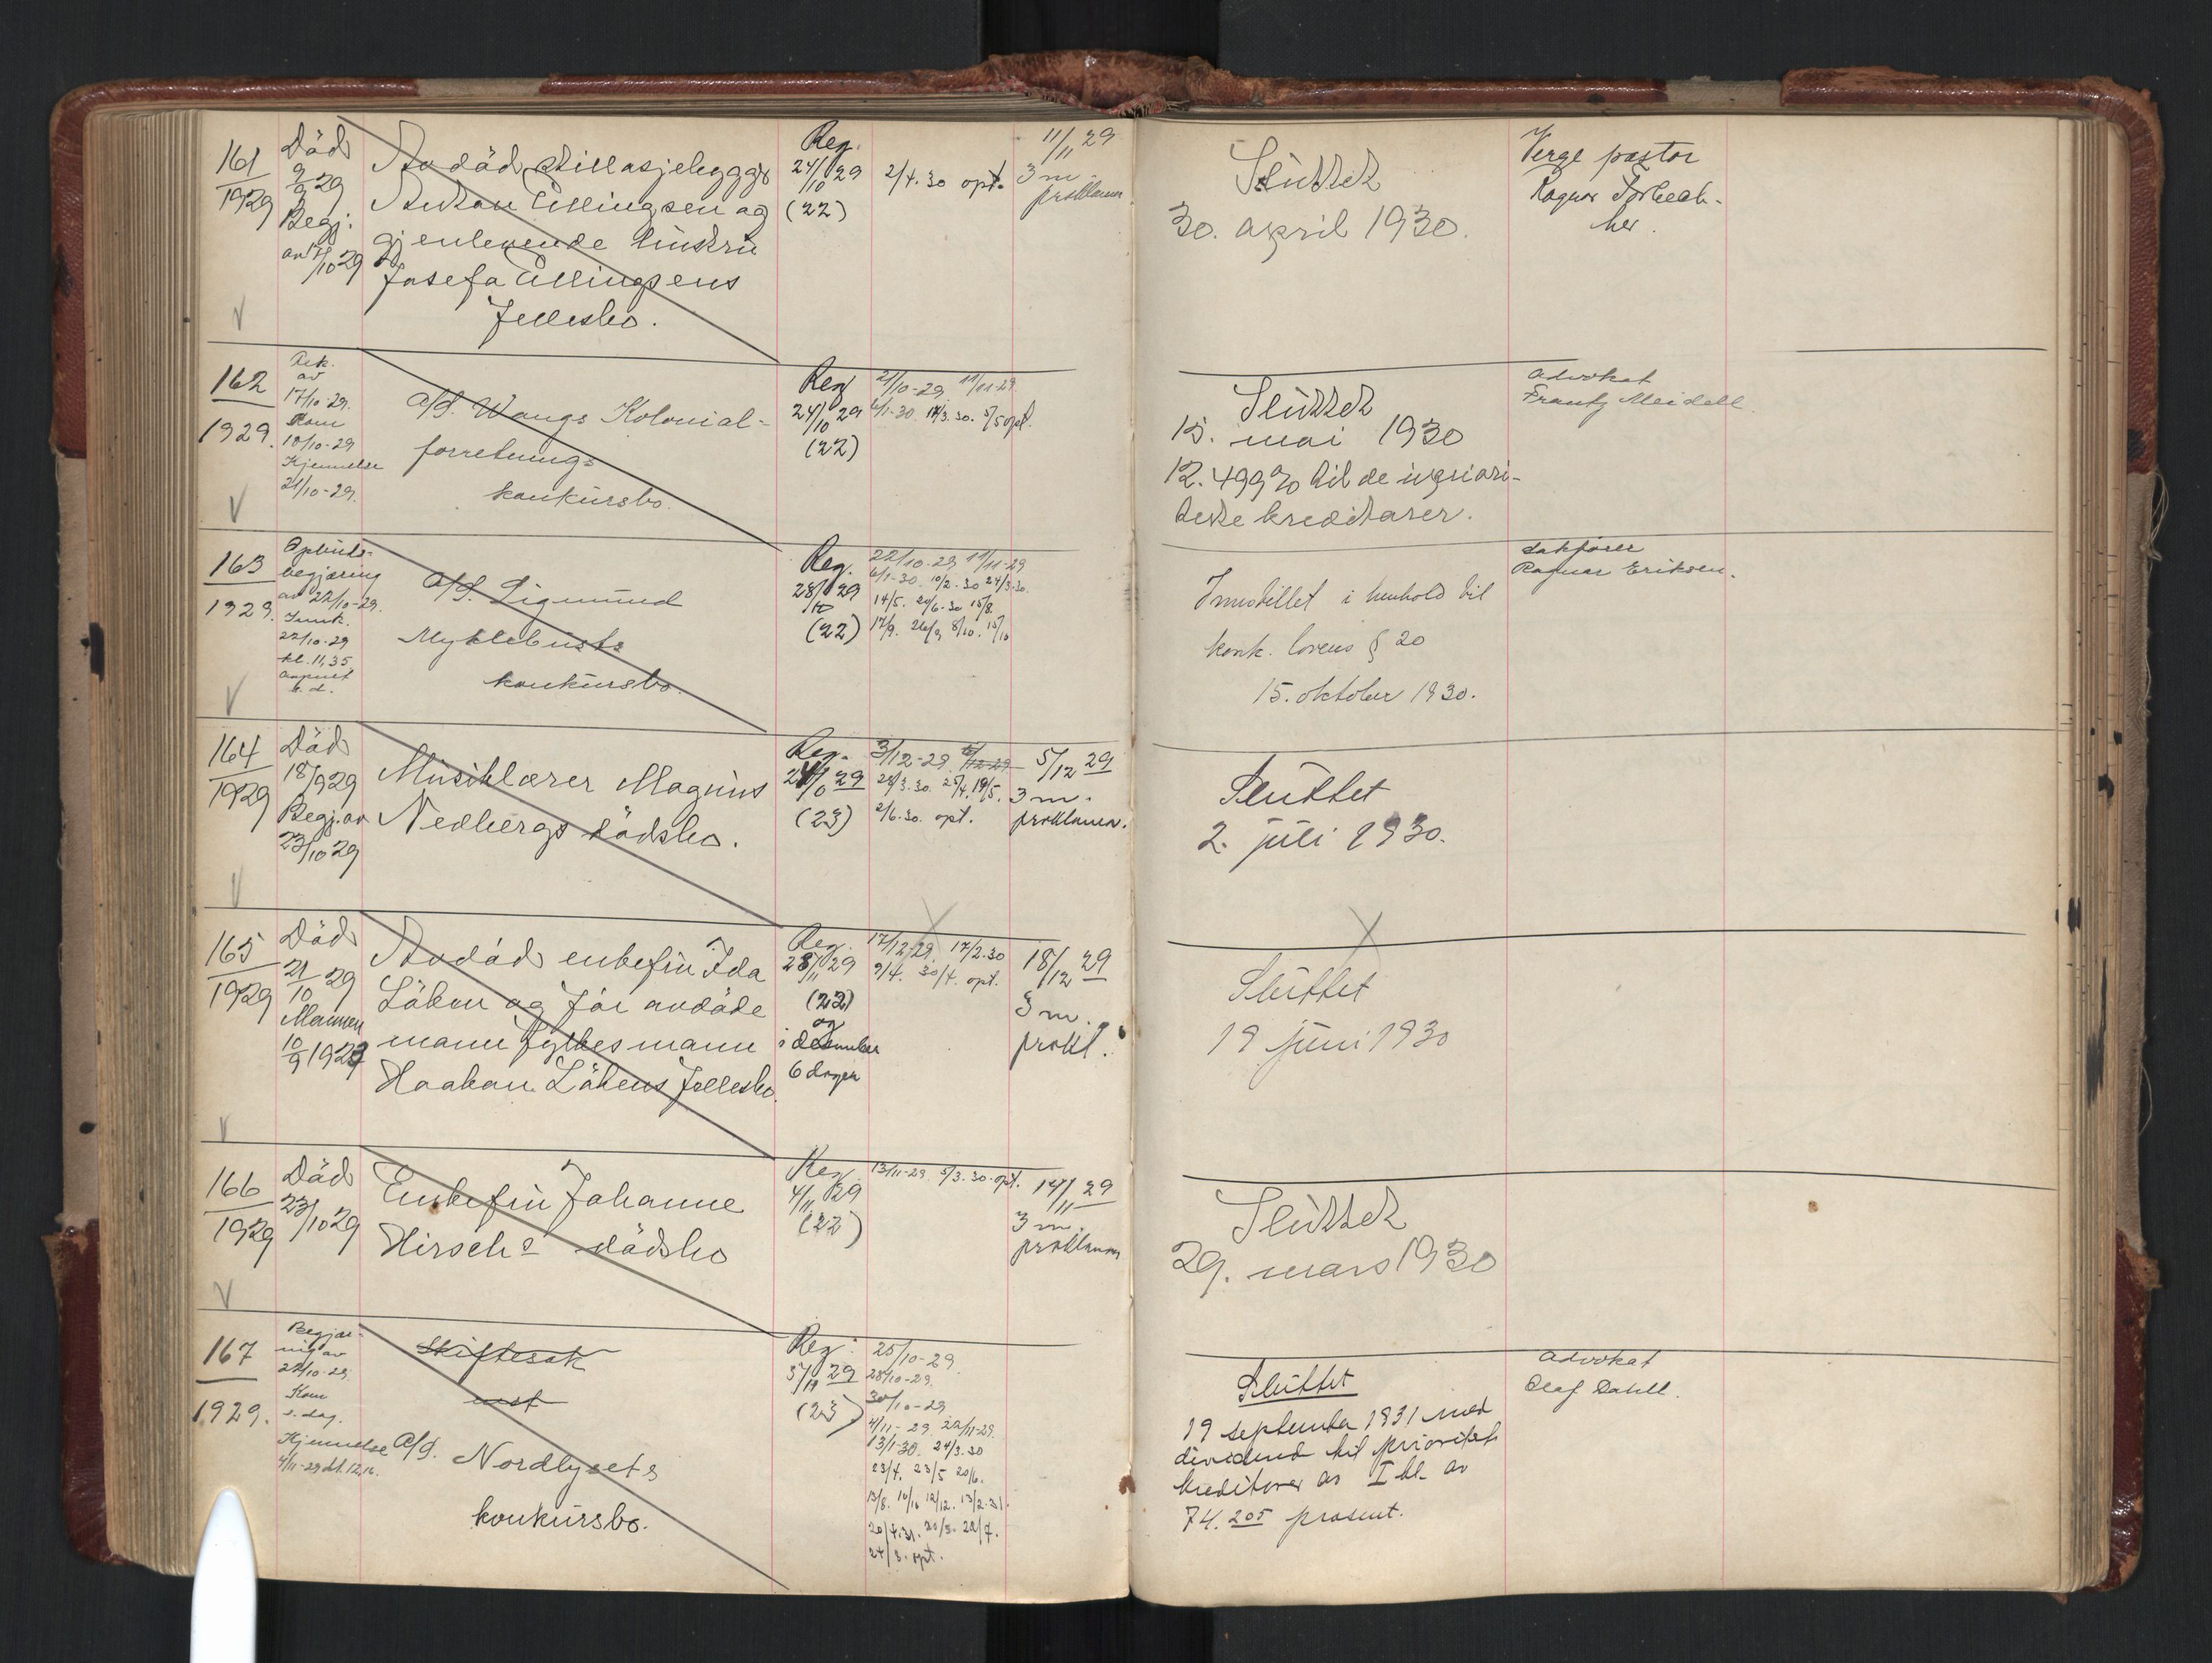 161
1929
Död
9/9 29
Begj.
av 17/10 29
Avdöd stillasjebygger
Anton Ellingsen og
gjenlevende hustru
Josefa Ellingsens
fellesbo.
Reg.
24/10 29
(22)
2/4.30 opt.
11/11 29
3 m.
proklama.
Sluttet
30. april 1930.
Verge pastor
Ragnar
her.
162
1929.
Rek.
av
17/10-29.
Kom
18/10-29
Kjennelse
21/10-29.
A/S. Wangs Kolonial-
forretnings
konkursbo.
Reg
24/10 29
(22)
21/10-29, 11/11-29
6/1-30. 14/3.30. 5/5 opt.
Sluttet
15. mai 1930
12.499 % til de uprivori-
terte kreditorer.
Advokat
Frantz Meidell.
163
1929.
Opbuds-
begjæring
av 22/10-29.
Innk.
22/10-29
kl. 11,35
s. d.
A/S. Sigmund
Myklebusts
konkursbo.
Reg.
28/10 29
(22)
22/10-29, 11/11-29
6/1-30. 10/2-30 24/3-30.
14/5. 20/6-30 15/8.
17/9. 26/9 8/10. 15/10
Innstillet i henhold til
konk. lovens § 20
15. oktober 1930.
Sakfører
Ragnar Eriksen.
164
1929
Död
18/9 29
Begj. av
23/10 29
Musiklærer Magnus
Nedbergs dödsbo.
Reg.
29
(23)
3/12-29
24/3.30. 25/4. 19/5.
2/6.30. opt.
5/12 29
3 m.
proklama.
Sluttet
2. juli 1930.
165
1929
Död
21/10 29
Mannen
10/9 1923
Avdöd enkefru Ida
Löken og för avdöde
mann fylkesmann
Haakon Lökens fellesbo.
Reg.
28/11 29
(22)
og
i desember
6 dager
17/12-29. 17/2.30
9/4. 30/4. opt.
18/12 29
3 m.
prokl.
Sluttet
19 juni 1930
166
1929
Död
23/10 29
Enkefru Johanne
Hirschs dödsbo
Reg.
4/11 29
(22)
13/11-29 5/3.30. opt.
14/11 29
3 m.
proklama
Sluttet
29. mars 1930
167
1929.
Begjæ-
ring av
24/10-29.
Kom
s. dag.
Kjennelse
4/11-29 kl. 12,10.
Skiftesak
A/S. Nordlysets
konkursbo.
Reg.
5/11 29
(23)
25/10-29
28/10-29.
30/10-29
4/11-29 22/11-29.
13/1-30. 24/3.30
23/4. 23/5 20/6.
13/8. 10/10 12/12. 13/2-31.
20/4.31. 20/5. 22/7.
24/8. opt.
Sluttet
19 september 1931 med
dividende til prioritets
kreditorer av I kl. av
74.205 prosent.
Advokat
Olaf Dahll.